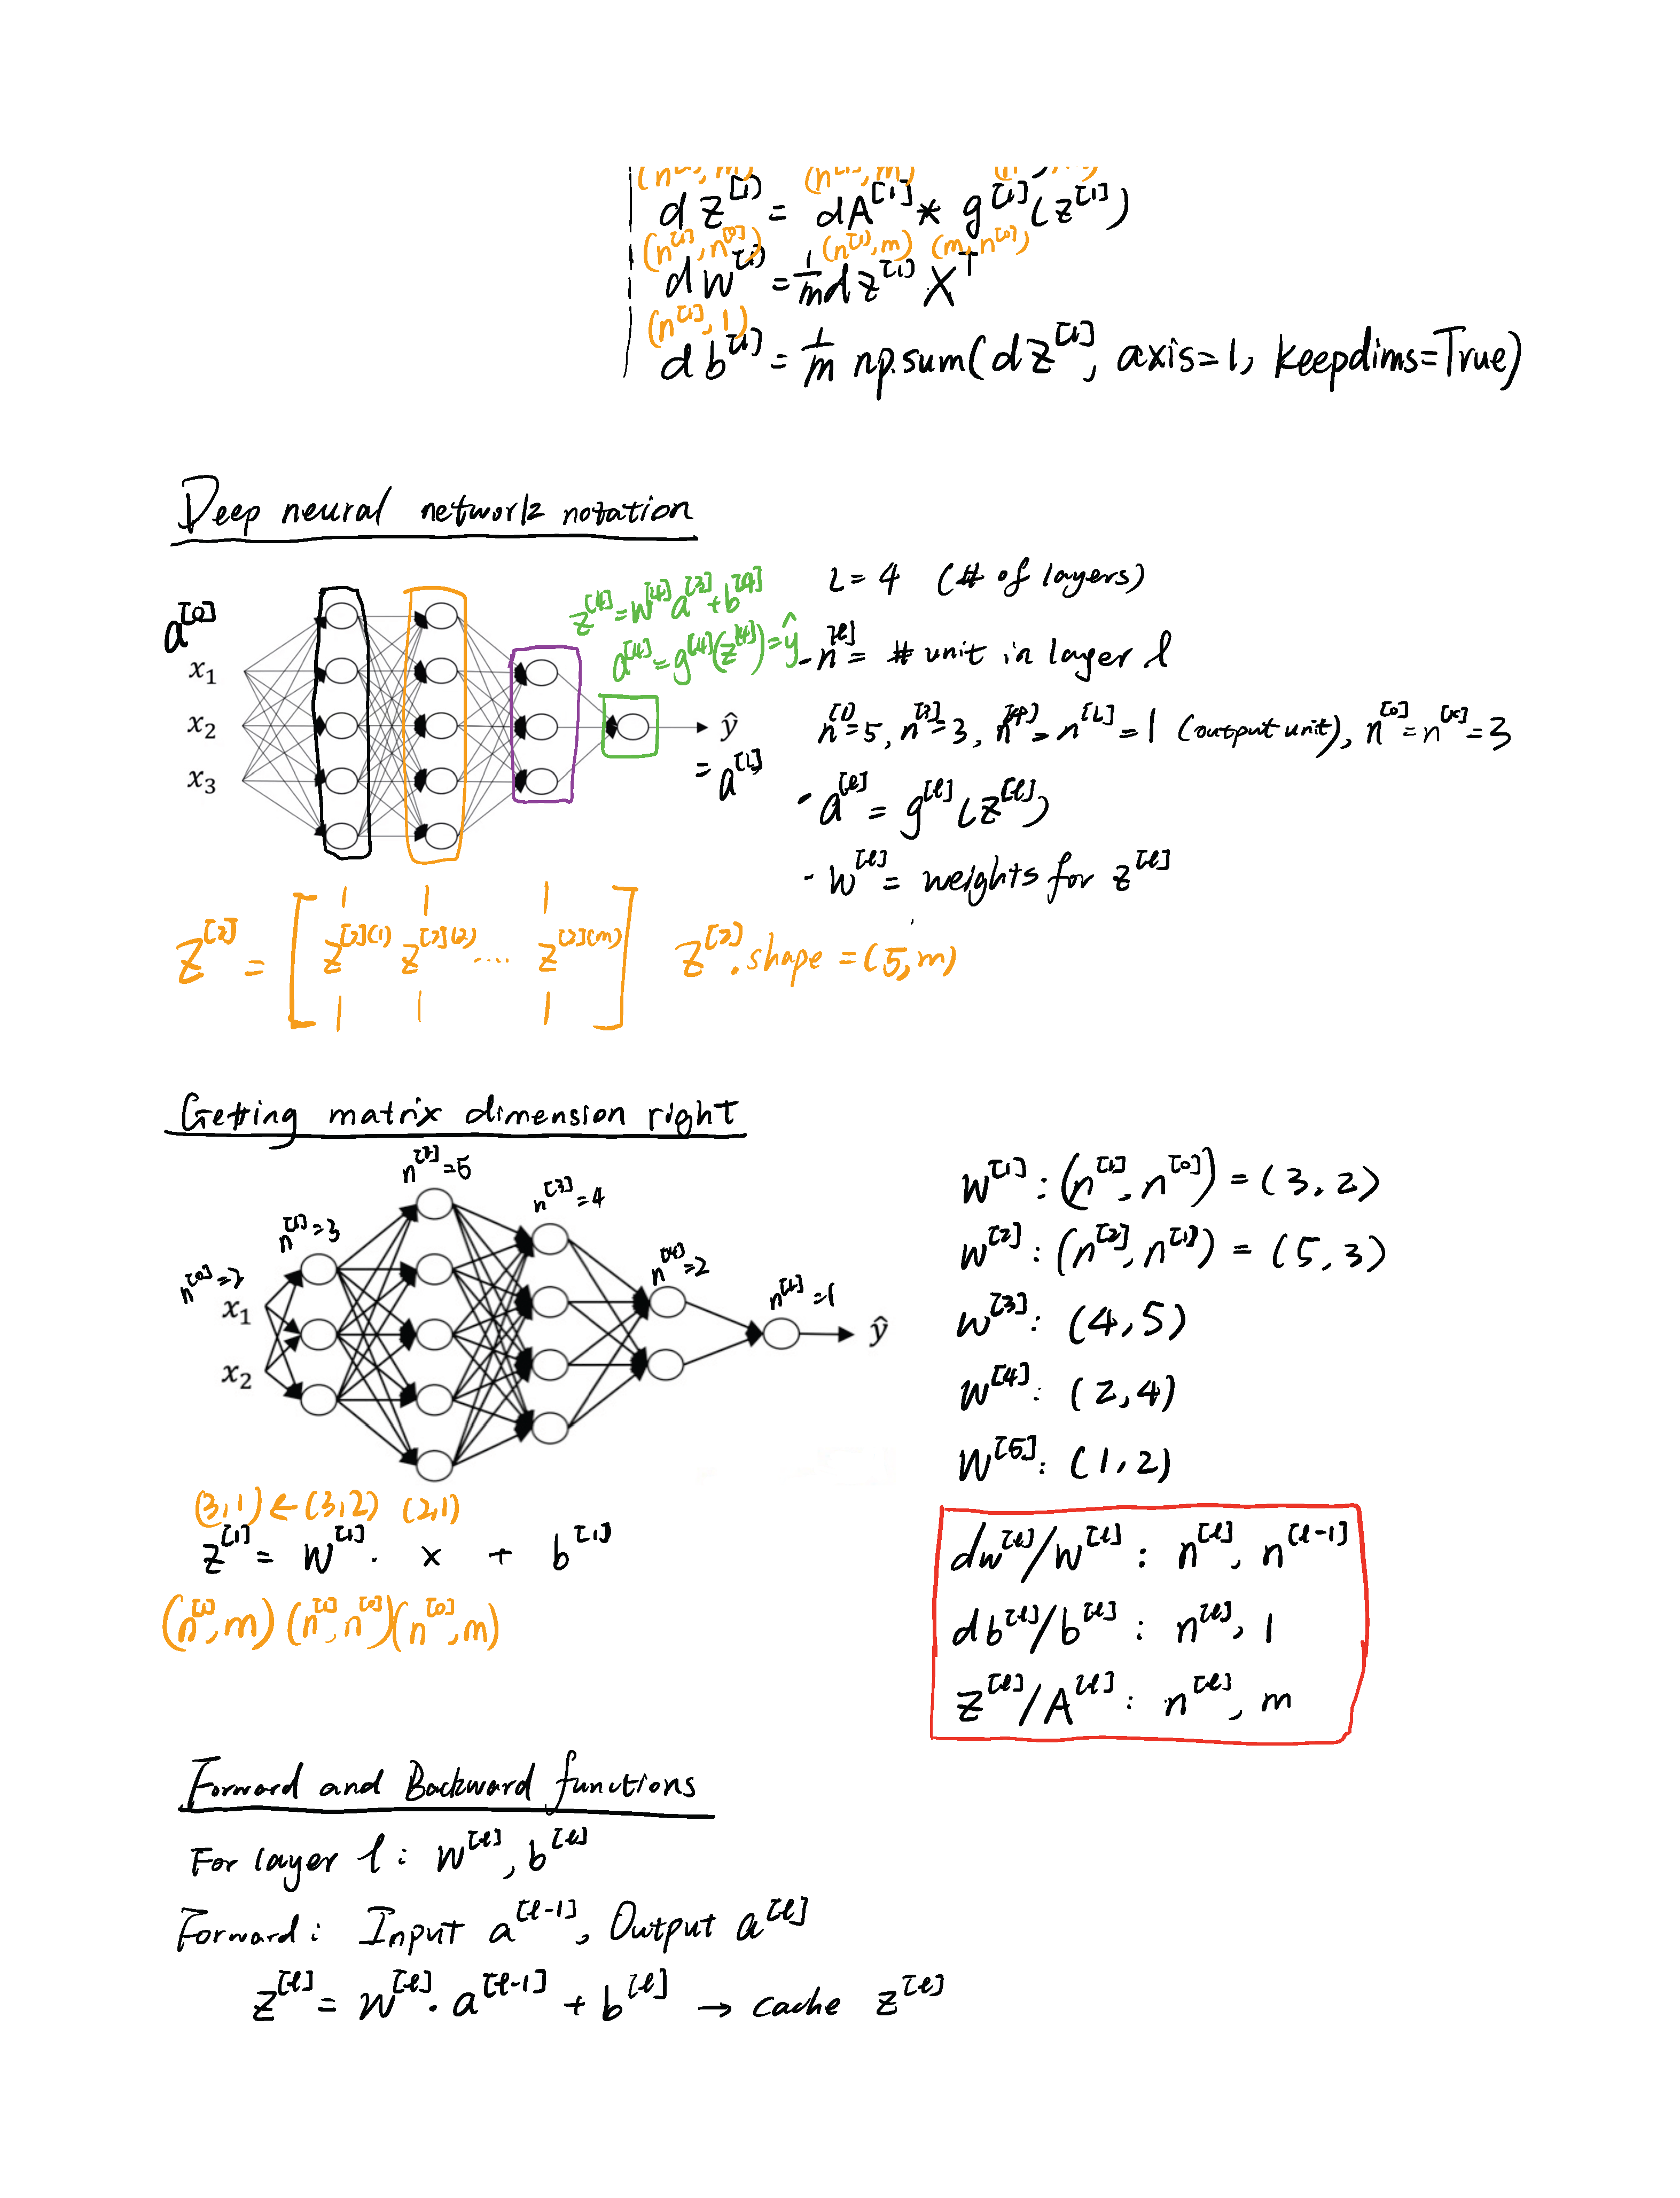 (n[1], m) (n[1], m)
dz[1] = dA[1] * g[1](z[1])
(n[1], n[0]) (n[1], m) (m, n[0])
dw[1] = 1/m dz[1] X^T
(n[1], 1)
db[1] = 1/m np.sum(dz[1], axis=1, keepdims=True)
Deep neural network notation
a[0]
x1
x2
x3
z[4] = w[4] a[3] + b[4]
a[4] = g[4](z[4]) = ŷ
ŷ
= a[L]
L = 4 (# of layers)
- n[l] = # unit in layer l
n[1]=5, n[3]=3, n[4] = n[L] = 1 (output unit), n[0] = n[x] = 3
- a[l] = g[l](z[l])
- w[l] = weights for z[l]
Z[2] = [ z[2](1) z[2](2) .... z[2](m) ] Z[2].shape = (5, m)
Getting matrix dimension right
n[0]=2
n[1]=3
n[2]=5
n[3]=4
n[4]=2
n[L]=1
x1
x2
ŷ
w[1] : (n[1], n[0]) = (3, 2)
w[2] : (n[2], n[1]) = (5, 3)
w[3] : (4, 5)
w[4] : (2, 4)
w[5] : (1, 2)
(3,1) ← (3,2) (2,1)
z[1] = w[1] · x + b[1]
(n[1], m) (n[1], n[0]) (n[0], m)
dw[l]/w[l] : n[l], n[l-1]
db[l]/b[l] : n[l], 1
z[l]/A[l] : n[l], m
Forward and Backward functions
For layer l : w[l], b[l]
Forward : Input a[l-1], Output a[l]
z[l] = w[l] · a[l-1] + b[l] → cache z[l]